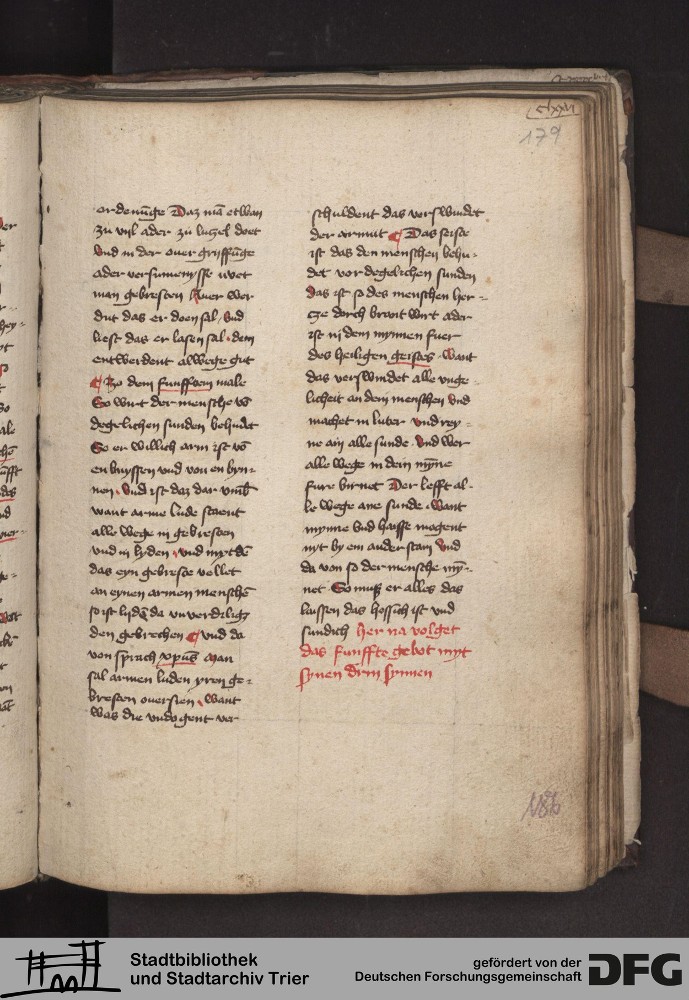 179
ordenu̅ge Daz ma̅ etwan
zu vijl ader zu lutzel doet
Vnd in der ouer griffu̅ge
ader versumenysse wet
man gebresten Auer wer
dut das er doen sal, vnd
liest das er lasen sal. dem
entwerdent alwege gut
¶ Zo dem funfften male
So wirt der mensche vo̅
degelichen sunden behudet
So er willich arm ist vo̅
en buyssen vnd von en byn=
nen. vnd ist daz dar vmb
want arme lude staent
alle wege in gebresten
vnd in lyden, vnd myt de̅
das eyn gebreste vellet
an eynen armen mensche̅
so ist lyde̅ da vnverdilig
den gebrechen ¶ vnd da
von sprach xp̅us man
sal armen luden yren ge=
bresten ouersien, want
was die vndogent ver
schuldent das verswindet
der armut ¶ Das seiste
ist das den menschen behu=
det vor degelichen sunden
Das ist so des menschen her=
tze dorch brant wirt ader
ist in dem mynnen fuer
des heiligen geistes. want
das verswindet alle vnge=
licheit an dem menschen vnd
machet in luter vnd rey=
ne ain alle sunde. vnd wer
alle wege in dem my̅ne
fure birnet Der lefft al=
le wege ane sunde. want
mynne vnd hasse mogent
nyt by ein ander stan vnd
da von so der mensche my̅=
net So muß er alles das
laissen das hessich ist vnd
sundich her na volget
das funffte gebot myt
synen drin synnen
Stadtbibliothek
und Stadtarchiv Trier
gefördert von der
Deutschen Forschungsgemeinschaft
DFG